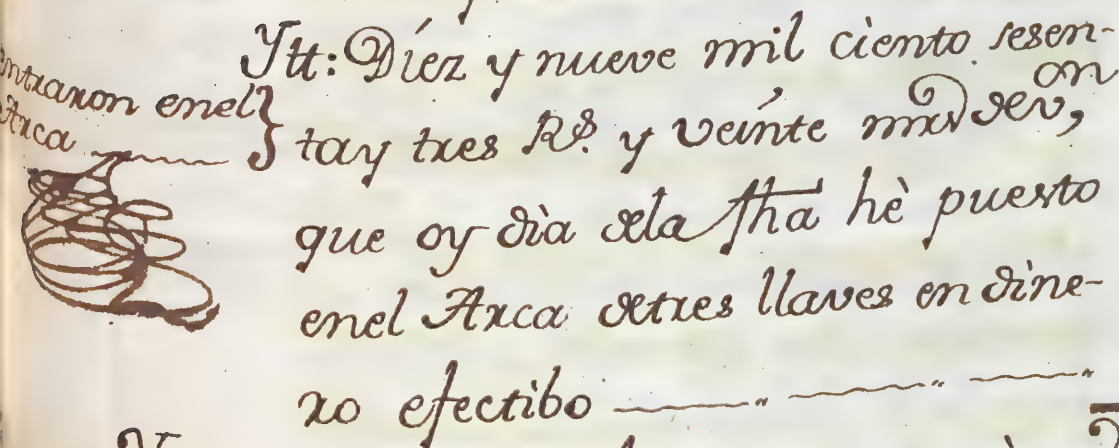 entraron enel
Arca
Ytt: Díez y nueve mil ciento sesen-
tay tres Rˢ. y veínte mrs de vᵒⁿ,
que oy día dela fha hè puesto
enel Arca detres llaves en díne-
ro efectibo